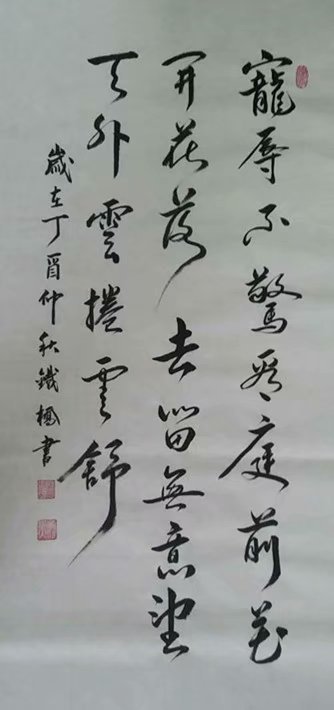 寵辱不驚看庭前花
開花落去留無意望
天外雲捲雲舒
歲在丁酉仲秋鐵楓書